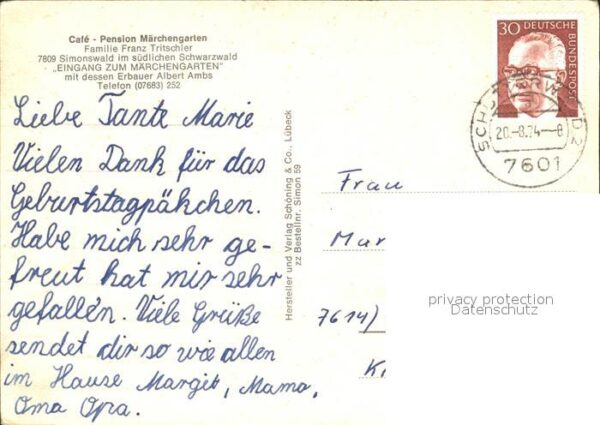 Café - Pension Märchengarten
Familie Franz Tritschler
7809 Simonswald im südlichen Schwarzwald
„EINGANG ZUM MÄRCHENGARTEN"
mit dessen Erbauer Albert Ambs
Telefon (07683) 252
Liebe Tante Marie
Vielen Dank für das
Geburtstagpäkchen.
Habe mich sehr ge-
freut hat mir sehr
gefallen. Viele Grüße
sendet dir so wie allen
im Hause Margit, Mama,
Oma Opa.
Hersteller und Verlag Schöning & Co., Lübeck
zz Bestellnr. Simon 59
30 DEUTSCHE
BUNDESPOST
20.-8.74--8
7601
Frau
Mar
7614)
privacy protection
Datenschutz